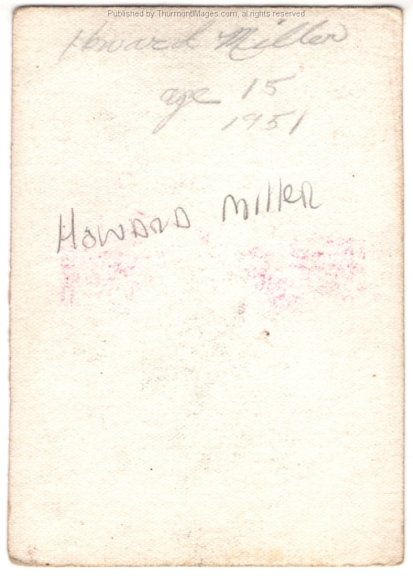 Published by ThurmontImages.com, all rights reserved
Howard Miller
age 15
1951
HOWARD MILLER